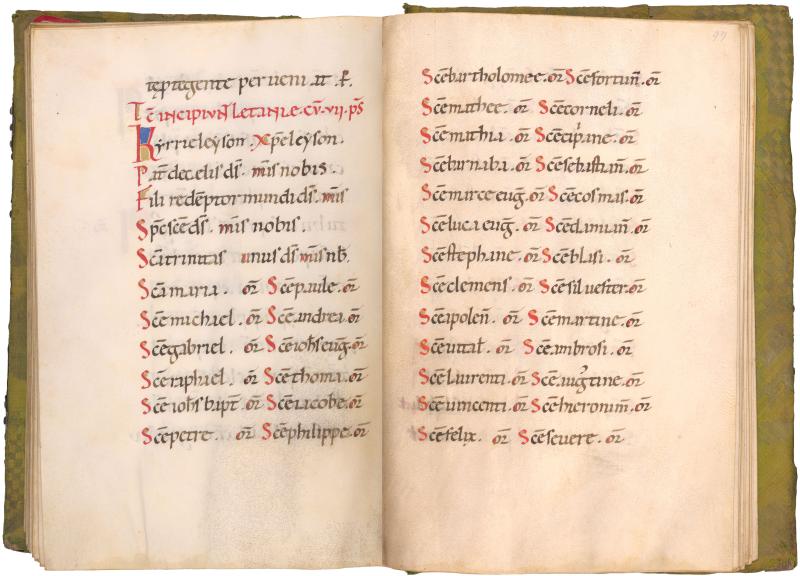 te protegente perveniat. P.
Tc̄ INCIPIUNT LETANIE. CU̅. VII. PS̄
Kyrrieleyson. Xp̄eleyson.
Pat̄ de celis ds̄. mīs nobis.
Fili redēptor mundi ds̄. mīs
Sp̄c sc̄e ds̄. mīs nobis.
Sc̄a trinitas unus ds̄ mīs nb̄.
Sc̄a maria. or̄ Sc̄e paule. or̄
Sc̄e michael. or̄ Sc̄e andrea. or̄
Sc̄e gabriel. or̄ Sc̄e ioh̄s euḡ. or̄
Sc̄e raphael. or̄ Sc̄e thoma. or̄
Sc̄e ioh̄s bapt̄. or̄ Sc̄e iacobe. or̄
Sc̄e petre. or̄ Sc̄e philippe. or̄
97
Sc̄e bartholomee. or̄ Sc̄e fortun̄. or̄
Sc̄e mathee. or̄ Sc̄e corneli. or̄
Sc̄e mathia. or̄ Sc̄e cip̄ane. or̄
Sc̄e barnaba. or̄ Sc̄e sebastian̄. or̄
Sc̄e marce euḡ. or̄ Sc̄e cosmas. or̄
Sc̄e luca euḡ. or̄ Sc̄e damian̄. or̄
Sc̄e stephane. or̄ Sc̄e blasi. or̄
Sc̄e clemens. or̄ Sc̄e silvester. or̄
Sc̄e apolen̄. or̄ Sc̄e martine. or̄
Sc̄e vital̄. or̄ Sc̄e ambrosi. or̄
Sc̄e laurenti. or̄ Sc̄e augtine. or̄
Sc̄e vincenti. or̄ Sc̄e hieronim̄. or̄
Sc̄e felix. or̄ Sc̄e severe. or̄